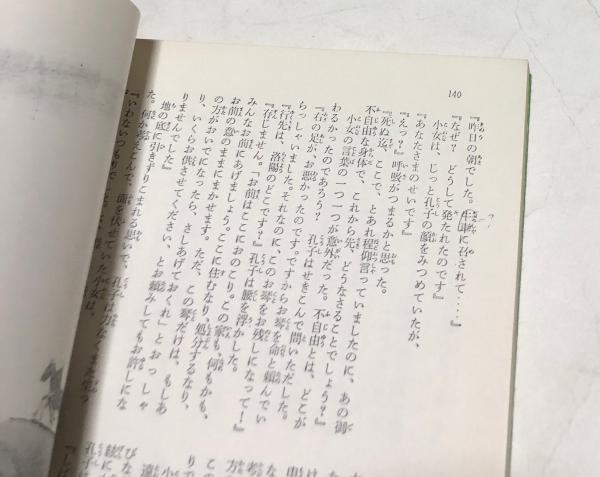 140
『昨日の朝でした。牛車に召されて・・・・』
『なぜ？　どうして発たれたのです』
少女は、じっと孔子の顔をみつめていたが、
『あなたさまのせいです』
『えっ？』呼吸がつまるかと思った。
『死ぬ迄、ここで、とあれ程仰言っていましたのに、あの御
不自由な身体で、これから先、どうなさることでしょう？』
少女の言葉の一つ一つが意外だった。不自由とは、どこが
わるかったのであろう？　孔子はせきこんで問いただした。
『右の足が、お悪かったのです。ですからお琴を命と頼んでい
らっしゃいました。それなのに、このお琴をお残しになって！』
『行先は、洛陽のどこです？』孔子は腰を浮かした。
『存じません。「お前はここにおのこり。この家も、何もかも、
みんなお前にあげましょう。ここに住むなり、処分するなり、
お前の意のままにまかせます。ただ、この琴だけは、もしあ
の方がおいでになったら、さしあげておくれ」とおっしゃ
り、いくらお供させてくださいと、お頼みしてもお許しにな
りませんでした』
地の底に引きずりこまれる思いで、孔子は力なく
た。何か考えこんで、面を伏せていた少女は、
『いわないつもりで